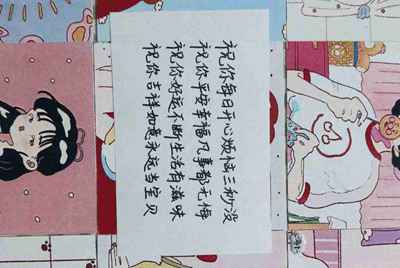 祝你每日开心烦恼三秒没
祝你平安幸福凡事都无悔
祝你好运不断生活有滋味
祝你吉祥如意永远当宝贝